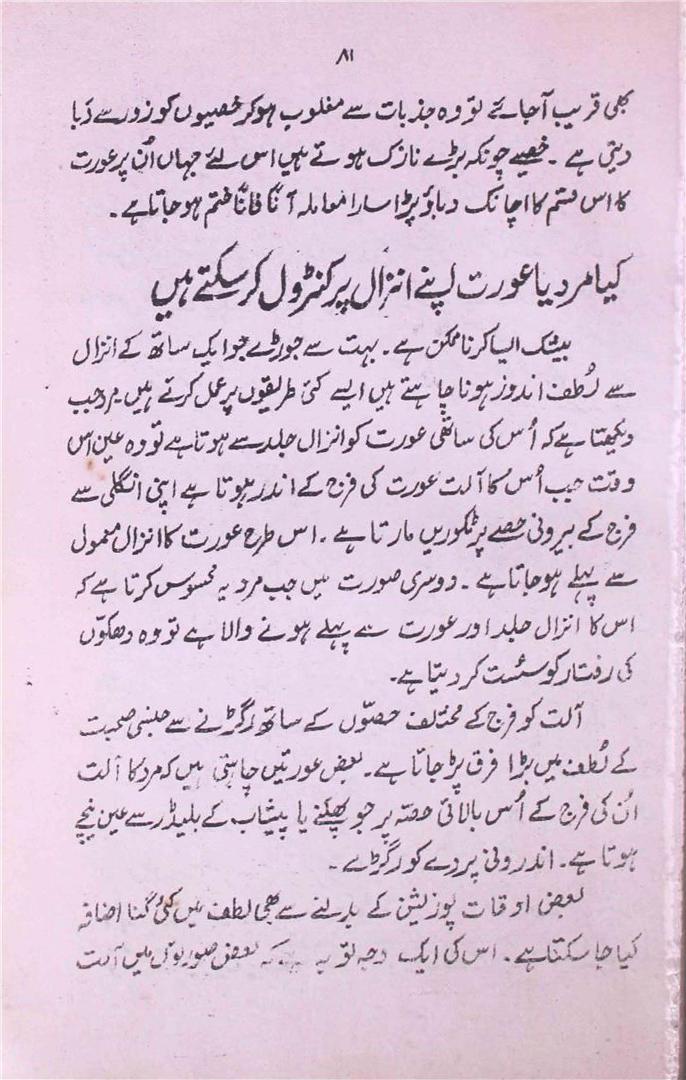 ۸۱
بھی قریب آجائے تو وہ جذبات سے مغلوب ہو کر خصیوں کو زور سے دَبا
دیتی ہے ۔ خصیے چونکہ بڑے نازک ہوتے ہیں اس لئے جہاں اُن پر عورت
کا اس قسم کا اچانک دباؤ پڑا سارا معاملہ آناً فاناً ختم ہو جاتا ہے ۔
کیا مرد یا عورت اپنے انزال پر کنٹرول کر سکتے ہیں
بیشک ایسا کرنا ممکن ہے ۔ بہت سے جوڑے جو ایک ساتھ کے انزال
سے لُطف اندوز ہونا چاہتے ہیں ایسے کئی طریقوں پر عمل کرتے ہیں ۔ مرد جب
دیکھتا ہے کہ اُس کی ساتھی عورت کو انزال جلد سے ہوتا ہے تو وہ عین اس
وقت جب اُس کا آلت عورت کی فرج کے اندر ہوتا ہے اپنی انگلی سے
فرج کے بیرونی حصے پر ٹکوریں مارتا ہے ۔ اس طرح عورت کا انزال معمول
سے پہلے ہو جاتا ہے ۔ دوسری صورت میں جب مرد یہ محسوس کرتا ہے کہ
اس کا انزال جلد اور عورت سے پہلے ہونے والا ہے تو وہ دھکوّں
کی رفتار کو سُست کر دیتا ہے ۔
آلت کو فرج کے مختلف حصوّں کے ساتھ رگڑنے سے جنسی صحبت
کے لُطف میں بڑا فرق پڑ جاتا ہے ۔ بعض عورتیں چاہتی ہیں کہ مرد کا آلت
اُن کی فرج کے اُس بالائی حصّہ پر جو پھکنے یا پیشاب کے بلیڈر سے عین نیچے
ہوتا ہے ۔ اندرونی پردے کو رگڑے ۔
بعض اوقات پوزیشن کے بدلنے سے بھی لطف میں کئی گنا اضافہ
کیا جا سکتا ہے ۔ اس کی ایک وجہ تو یہ ہے کہ بعض صورتوں میں آلت